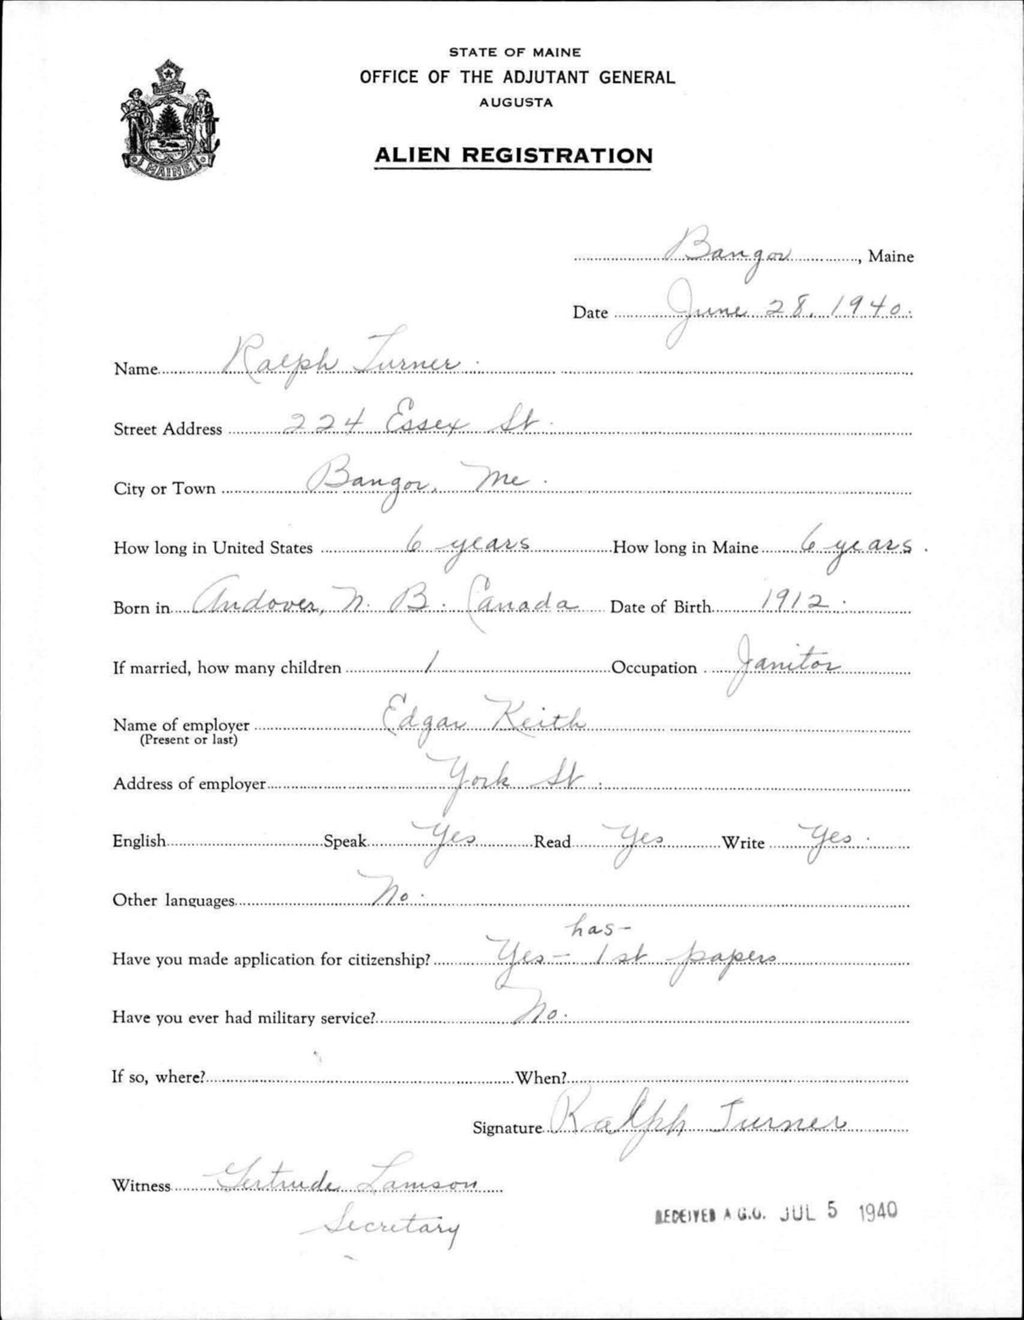 STATE OF MAINE
OFFICE OF THE ADJUTANT GENERAL
AUGUSTA
ALIEN REGISTRATION
MAINE
Bangor, Maine
Date June 28, 1940.
Name Ralph Turner.
Street Address 224 Essex St.
City or Town Bangor, Me.
How long in United States 6 years How long in Maine 6 years.
Born in Andover, N. B. Canada Date of Birth 1912.
If married, how many children 1 Occupation Janitor
Name of employer Edgar Keith
(Present or last)
Address of employer York St.
English Speak Yes Read Yes Write Yes.
Other languages No.
has-
Have you made application for citizenship? Yes - 1st papers
Have you ever had military service? No.
If so, where? When?
Signature Ralph Turner
Witness Gertrude Lamson
Secretary
RECEIVED A.G.O. JUL 5 1940